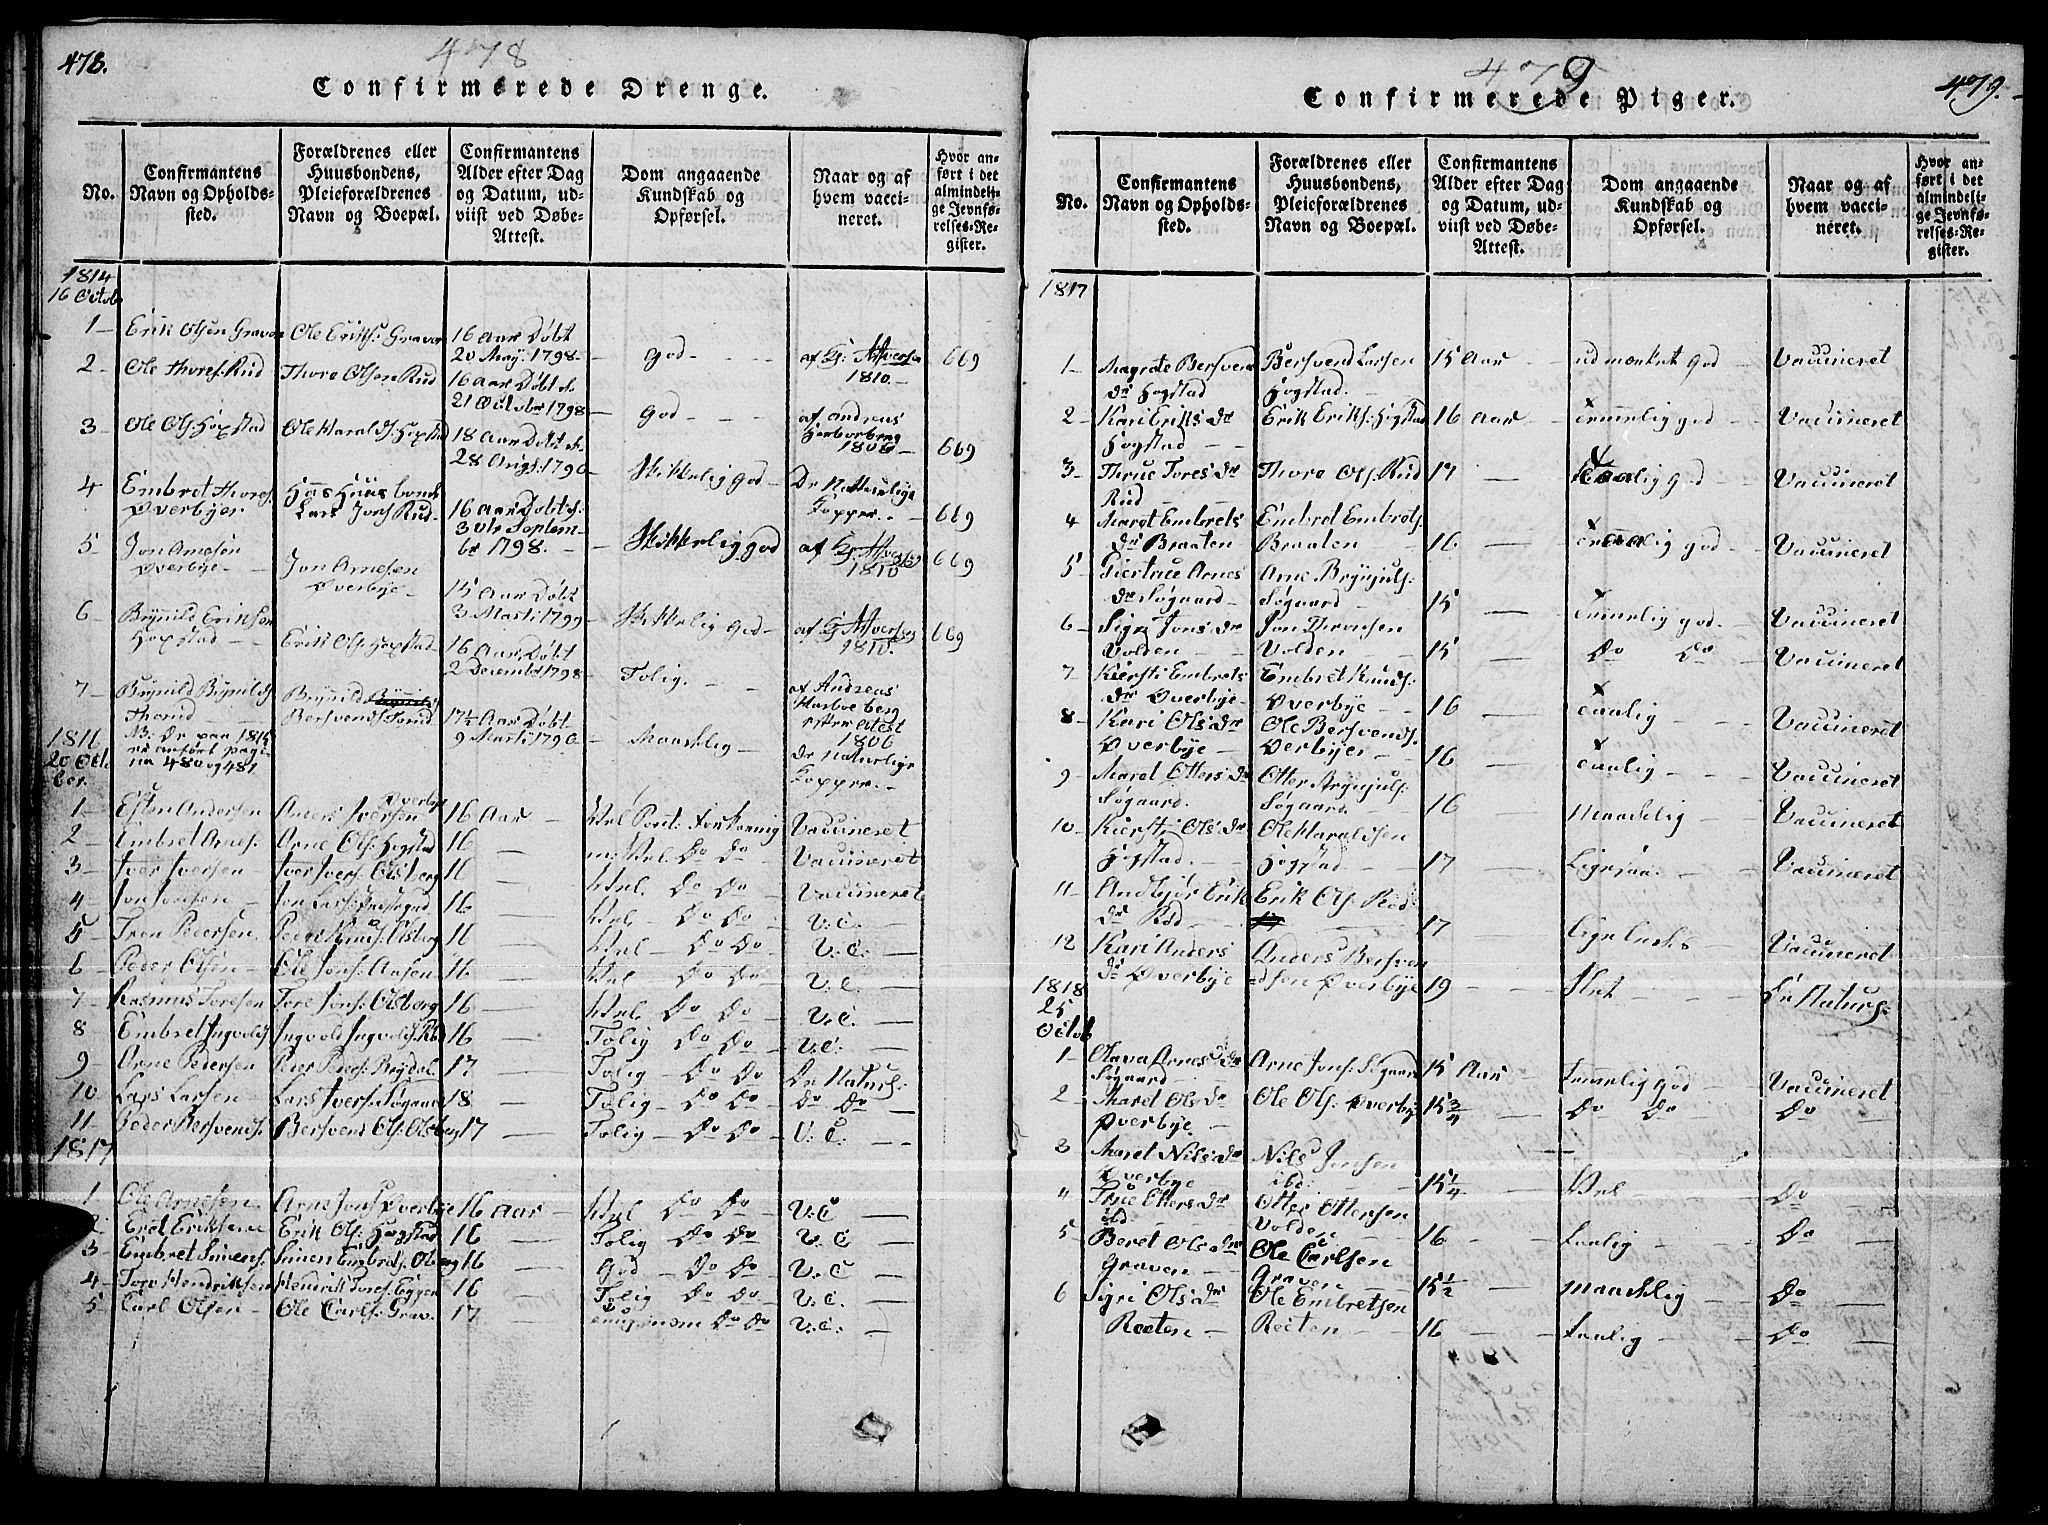 478.
478
Confirmerede Drenge.
No.
Confirmantens Navn og Opholds-sted.
Forældrenes eller Huusbondens, Pleieforældrenes Navn og Boepæl.
Confirmantens Alder efter Dag og Datum, ud-viist ved Døbe-Attest.
Dom angaaende Kundskab og Opførsel.
Naar og af hvem vacci-neret.
Hvor an-ført i det almindeli-ge Jevnfø-relses-Re-gister.
1814
16 Octob
1 Erik Olsen Graven Ole Eriks: Graven 16 Aar Døbt 20 May. 1798 God af 1810 669
2 Ole Thores: Rud Thore Olsen Rud 16 Aar Døbt d. 21 October 1798 God af Andreas 1806 669
3 Ole Ols: Hogstad Ole Haralds: Hogstad 18 Aar Døbt d. 28 Augs: 1796 Skikkelig God De Naturlige Kopper 669
4 Embret Thores: Øverbyen Lars Jons: Rud 16 Aar Døbt d. 30te Septem-br 1798. Skikkelig god af 1810 669
5 Jon Arnesen Øverbye Jon Arnesen Øverbye 15 Aar Døbt 3 Marti 1799 Skikkelig God af 1810. 669
6 Brynild Eriksen Hogstad Erik Ols: Hogstad 16 Aar Døbt 2 December 1798 Tolig. af Andreas efter Atest 1806
7 Brynild Brynilds: Thorud Brynild Bersvends: Torud 17½ Aar Døbt 9 Marti 1796 Maadelig De Naturlige Kopper
NB: De paa 1815 er anført pagi-na 480 og 481
1816
20 Octo-ber.
1 Esten Andersen Anders Iversen Øverbye 16 Aar Vel Vaccineret
2 Embret Arnes: Arne Ols: Hogstad 16 m: Vel Do Do Vaccineret
3 Iver Iversen Iver Ivers: Olsberg 16 Vel Do Do Vaccineret
4 Jon Jonsen Jon Lars: 16 Vel Do Do V.C.
5 Tron Pedersen Peder Knuds: Olsberg 16 Vel Do Do V.C.
6 Peder Olsen Ole Jons: Aasen 16 Vel Do Do V.C.
7 Rasmus Toresen Tore Jons: Olsberg 16 Vel Do Do V.C.
8 Embret Ingvolds: Ingvold Ingvolds: 16 Tolig Do Do V.C.
9 Arne Pedersen Peder Peders: Brydal 17 Tolig Do Do De Naturl:
10 Lars Larsen Lars Ivers: Søgaard 18 Tolig Do Do Do Do
11 Peder Bersvends: Bersvend Ols: Olsberg 17 Tolig Do Do V.C.
1817
1 Ole Arnesen Arne Jons: Øverbye 16 Aar Vel Do Do V.C
2 Erik Eriksen Erik Ols: Hogstad 16 Tolig Do Do V.C
3 Embret Simens: Simen Embrets: Olsberg 16 God Do Do V.C
4 Tore Hendriksen Hendrik Tores: Eggen 16 Tolig Do Do V.C.
5 Carl Olsen Ole Carls: Grav. 17 Do Do V.C.
479
479.
Confirmerede Piger.
No.
Confirmantens Navn og Opholds-sted.
Forældrenes eller Huusbondens, Pleieforældrenes Navn og Boepæl.
Confirmantens Alder efter Dag og Datum, ud-viist ved Døbe-Attest.
Dom angaaende Kundskab og Opførsel.
Naar og af hvem vacci-neret.
Hvor an-ført i det almindeli-ge Jevnfø-relses-Re-gister.
1817
1 Magrete Bersvens dr Hogstad Bersvend Larsen Hogstad. 15 Aar udmærket god Vaccineret
2 Kari Eriks dr Hogstad Erik Eriks: Hogstad 16 Aar temmelig god Vaccineret
3 Thrue Tores dr Rud Thore Ols: Rud 17 god Vaccineret
4 Maret Embrets dr Braaten Embret Embrets: Braaten 16 god Vaccineret
5 Giertrue Arnes dr Søgaard Arne Brynjuls: Søgaard 15 temmelig god Vaccineret
6 Sigri Jons dr Volden Jon Thronsen Volden 15 Do Do Vaccineret
7 Kiersti Embrets dr Øverbye Embret Knuds: Øverbye 16 taalig Vaccineret
8 Kari Ols dr Øverbye Ole Bersvends: Øerbyen 16 taalig Vaccineret
9 Maret Otters dr Søgaard. Otter Brynjuls: Søgaard 16 Maadelig Vaccineret
10 Kiersti Ols dr Hogstad. Ole Haraldsen Hogstad 17 Ligesaa Vaccineret
11 Andbjør Erik dr Rød Erik Ols: Rød 17 Ligeledes Vaccineret
12 Kari Anders dr Øverbye Anders Bersven dsen Øverbye 19 Slet De Naturl:
1818
25 Octob
1 Olava Arnes dr Søgaard Arne Jons: Søgaard 15 Aar Temmelig god Vaccineret
2 Maret Ols dr Øverbye Ole Ols: Øverbye 15¾ Do Do Do
3 Maret Nils dr Øverbye Nils Jensen ibd: 15¼ Vel Do
4 Otters dr Otter Ottersen Volden 16 Taalig Do
5 Beret Ols dr Graven Ole Carlsen Graven 15½ Maadelig Do
6 Sigri Ols dr Reeten Ole Embretsen Reeten 16 taalig Do